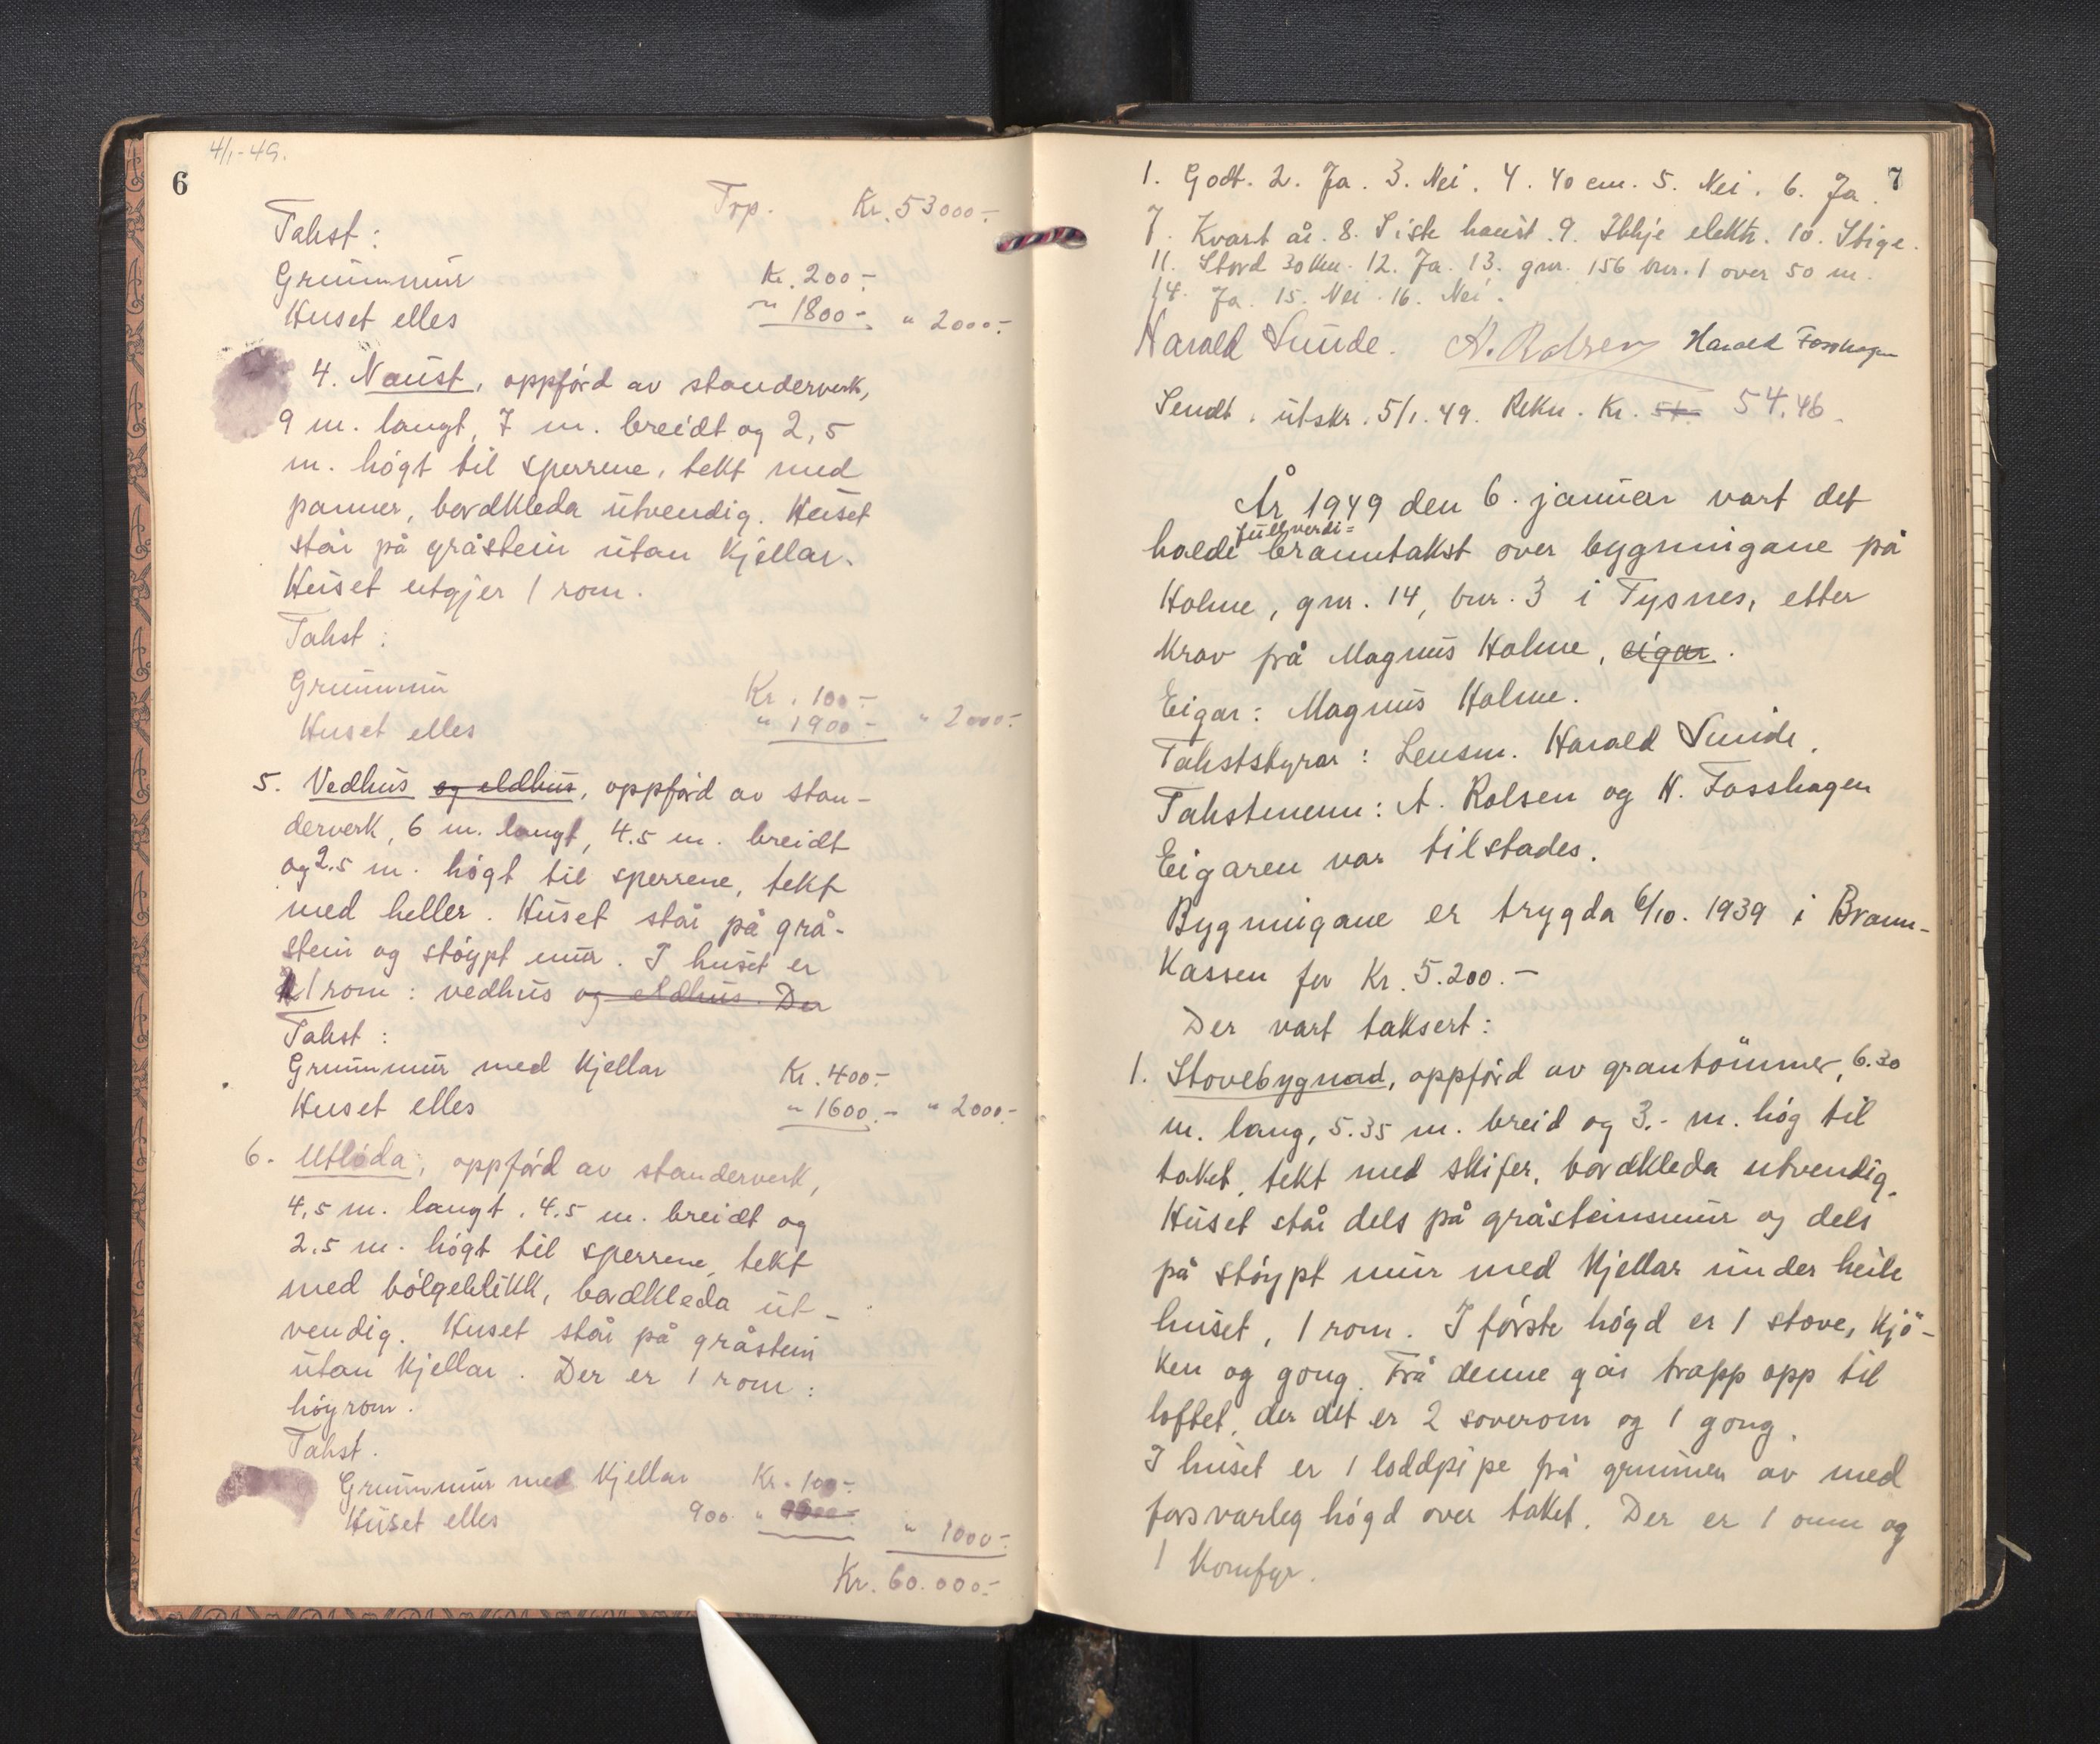 4/1-49.
6
Trp. Kr. 53000.-
Takst:
Grunnmur Kr. 200.-
Huset elles " 1800.- " 2000.-
4. Naust, oppförd av standerverk,
9 m. langt, 7 m. breidt og 2,5
m. högt til sperrene, tekt med
panner, bordkleda utvendig. Huset
står på gråstein utan kjellar.
Huset utgjer 1 rom.
Takst:
Grunnmur Kr. 100.-
Huset elles " 1900.- " 2000.-
5. Vedhus og eldhus, oppförd av stan-
derverk, 6 m. langt, 4.5 m. breidt
og 2.5 m. högt til sperrene, tekt
med heller. Huset står på grå-
stein og stöypt mur. I huset er
1 rom: vedhus og eldhus. Der
Takst:
Grunnmur med kjellar Kr. 400.-
Huset elles " 1600.- " 2000.-
6. Utlöda, oppförd av standerverk,
4,5 m. langt, 4.5 m. breidt og
2.5 m. högt til sperrene, tekt
med bölgeblikk, bordkleda ut-
vendig. Huset står på gråstein
utan kjellar. Der er 1 rom:
höyrom.
Takst.
Grunnmur med kjellar Kr. 100.-
Huset elles 900 " " 1000.-
Kr. 60.000.-
7
1. Godt. 2. Ja. 3. Nei. 4. 40 cm. 5. Nei. 6. Ja.
7. Kvart år. 8. Siste haust. 9. Ikkje elektr. 10. Stige.
11. Stord 30 km. 12. Ja. 13. gnr. 156 bnr. 1 over 50 m.
14. Ja. 15. Nei. 16. Nei.
Harald Sunde. A. Rolsen Harald Fosshagen
Sendt. utskr. 5/1. 49. Rekn. Kr. 54. 54.46.
År 1949 den 6. januar vart det
fullverdi=
halde branntakst over bygningane på
Holme, gnr. 14, bnr. 3 i Tysnes, etter
krav frå Magnus Holme, eigar.
Eigar: Magnus Holme.
Takststyrar: Lensm. Harald Sunde.
Takstmenn: A. Rolsen og H. Fosshagen
Eigaren var tilstades.
Bygningane er trygda 6/10. 1939 i Brann-
kassen for Kr. 5.200.-
Der vart taksert:
1. Stovebygnad, oppförd av grantömmer, 6.30
m. lang, 5.35 m. breid og 3.- m. hög til
taket, tekt med skifer, bordkleda utvendig.
Huset står dels på gråsteinsmur og dels
på stöypt mur med kjellar under heile
huset, 1 rom. I förste högd er 1 stove, kjö-
ken og gong. Frå denne går trapp opp til
loftet, der det er 2 soverom og 1 gong.
I huset er 1 loddpipe frå grunnen av med
forsvarleg högd over taket. Der er 1 omn og
1 komfyr.